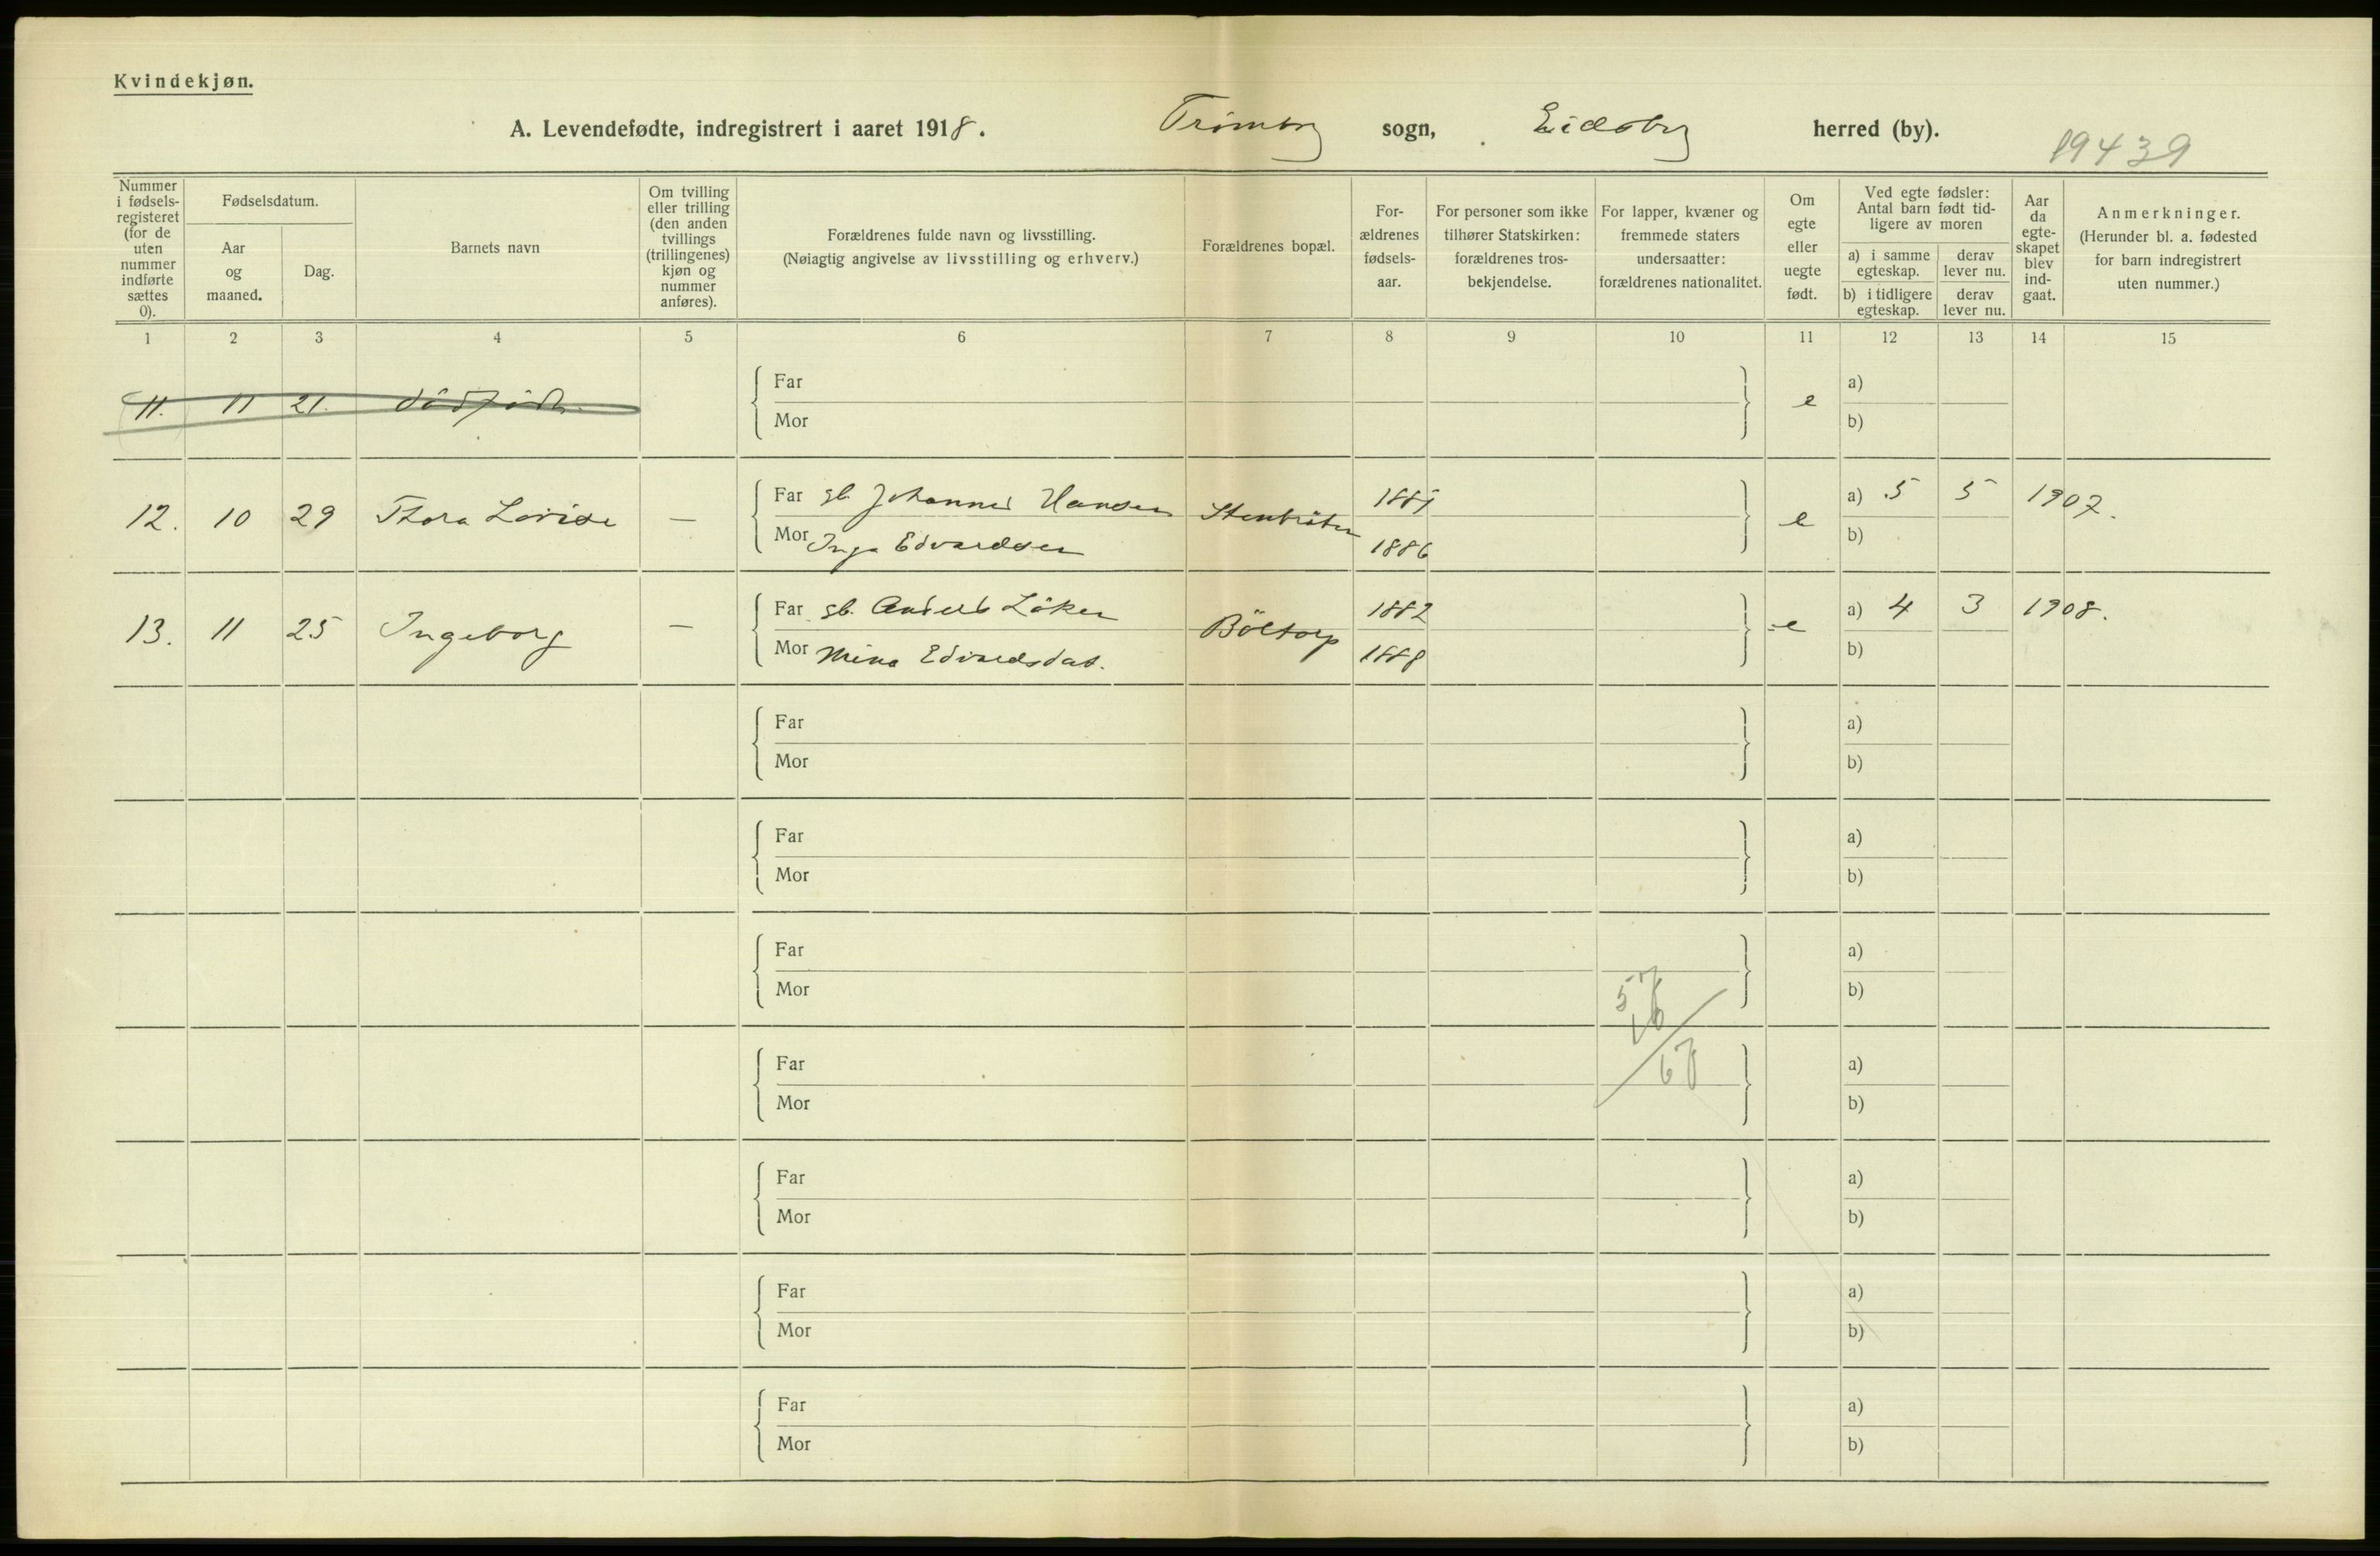 Kvindekjøn.
A. Levendefødte, indregistrert i aaret 1918. Trømborg sogn, Eidsberg herred (by).
19439
Nummer i fødsels-registeret (for de uten nummer indførte sættes 0).
Fødselsdatum.
Aar og maaned.
Dag.
Barnets navn
Om tvilling eller trilling (den anden tvillings (trillingenes) kjøn og nummer anføres).
Forældrenes fulde navn og livsstilling.
(Nøiagtig angivelse av livsstilling og erhverv.)
Forældrenes bopæl.
For-ældrenes fødsels-aar.
For personer som ikke tilhører Statskirken: forældrenes tros-bekjendelse.
For lapper, kvæner og fremmede staters undersaatter: forældrenes nationalitet.
Om egte eller uegte født.
Ved egte fødsler: Antal barn født tid-ligere av moren
a) i samme egteskap.
derav lever nu.
b) i tidligere egteskap.
derav lever nu.
Aar da egte-skapet blev ind-gaat.
Anmerkninger.
(Herunder bl. a. fødested for barn indregistrert uten nummer.)
1 2 3 4 5 6 7 8 9 10 11 12 13 14 15
11. 11 21. dødfødt. Far e a)
Mor b)
12. 10 29 Thora Lovise — Far gb. Johannes Hansen 1881 e a) 5 5 1907.
Mor Inga Edvardsen 1886 b)
13. 11 25 Ingeborg — Far gb. Anders Löken Böltorp 1882 e a) 4 3 1908.
Mor Mina Edvardsdat. 1888 b)
Far a)
Mor b)
Far a)
Mor b)
Far a)
Mor b)
Far a)
Mor b)
Far a)
Mor b)
Far a)
Mor b)
Far a)
Mor b)